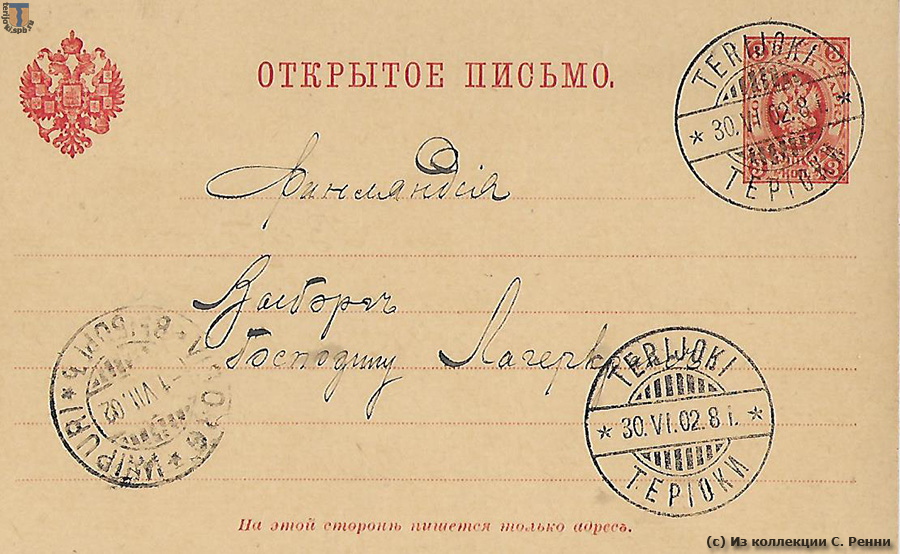 terijoki.spb.ru
ОТКРЫТОЕ ПИСЬМО.
TERIJOKI
30.VI.02.8 i.
ТЕРIОКИ
Финляндсiя
Выборгъ
Господину Лагеркранц
TERIJOKI
30.VI.02.8 i.
ТЕРIОКИ
1.VII.02
WIIPURI
На этой сторонѣ пишется только адресъ.
(c) Из коллекции С. Ренни